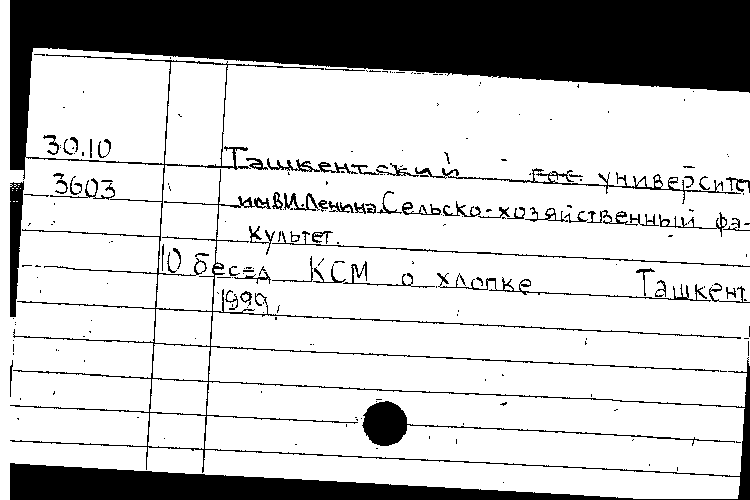 30.10 Ташкентский гос. университет
3603 им В.И. Ленина. Сельско-хозяйственный фа-
культет.
10 бесед КСМ о хлопке Ташкент
1929.